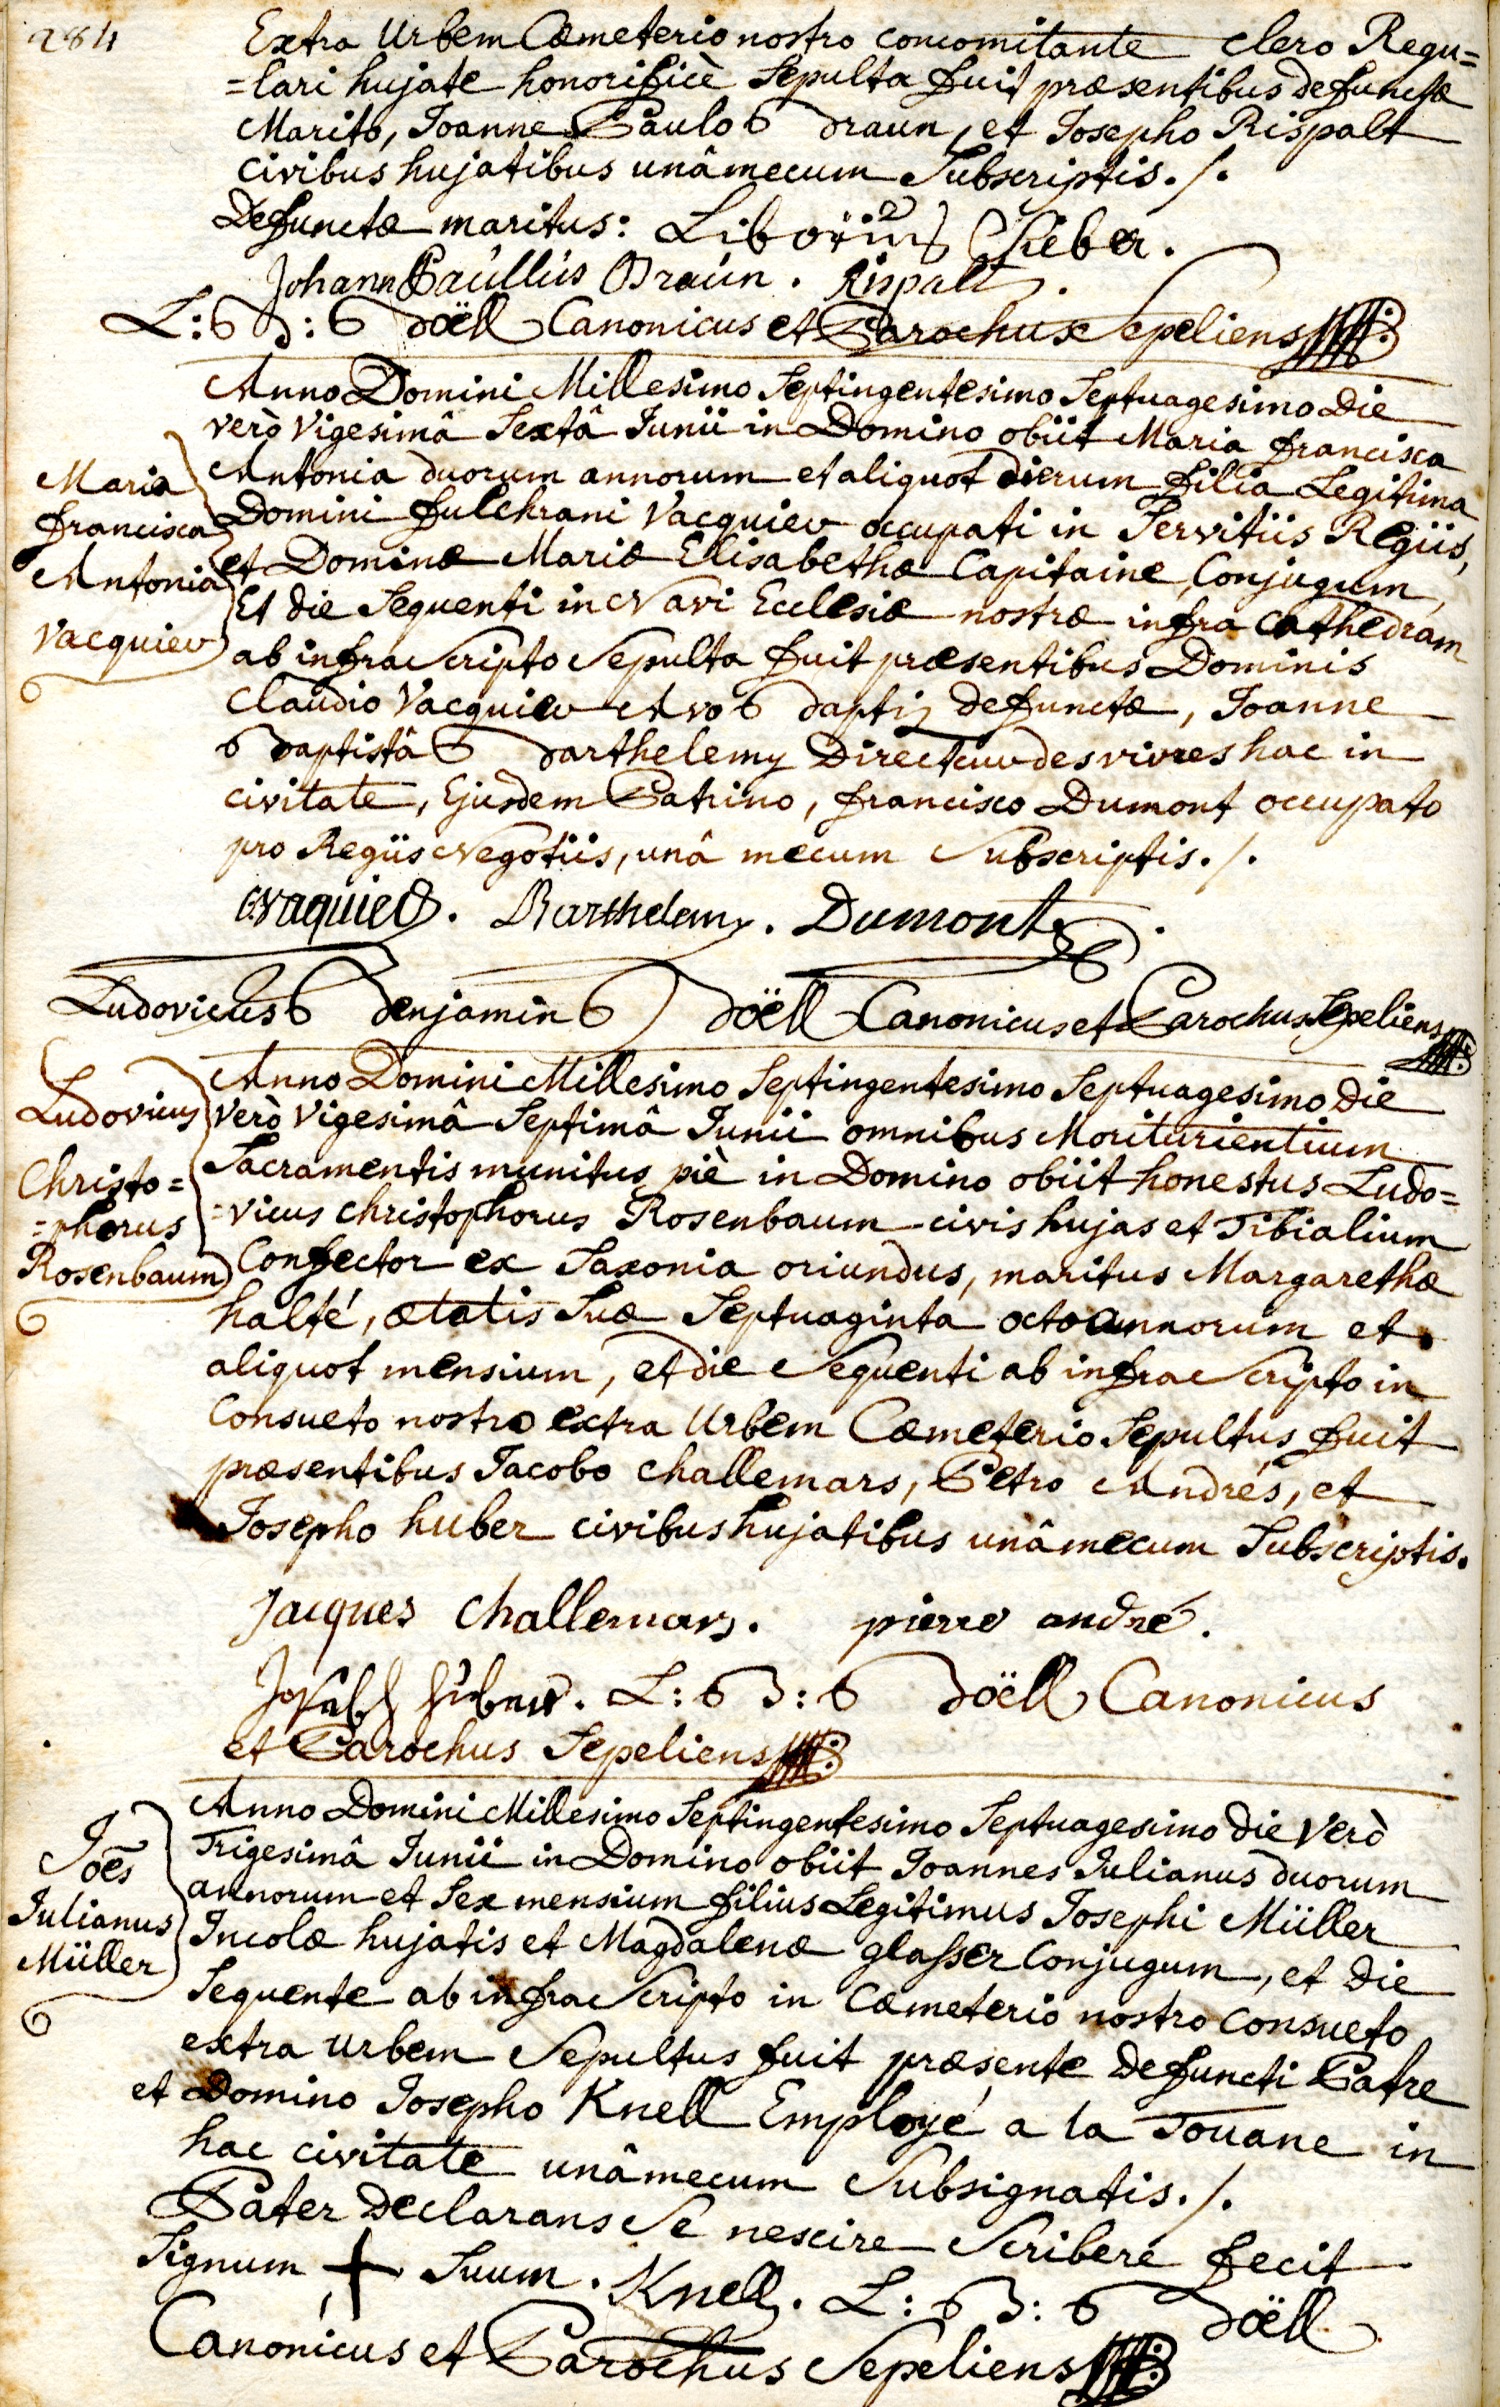 284
Extra Urbem Cœmeterio nostro concomitante clero Regu=
=lari hujate honorificè Sepulta fuit præsentibus defunctæ
Marito, Joanne Paulo Braun, et Josepho Rispalt
civibus hujatibus unâ mecum Subscriptis./.
Defunctæ maritus: Liborius Sieber.
Johann Paullus Braun. Rispalt.
L: B: Boëll Canonicus et Parochus Sepeliens
Anno Domini Millesimo Septingentesimo Septuagesimo die
verò Vigesimâ Sextâ Junii in Domino obiit Maria francisca
Antonia duorum annorum et aliquot dierum filia Legitima
Domini fulchrani Vacquier occupati in Servitiis Regiis,
et Dominæ Mariæ Elisabethæ Capitaine, Conjugum,
Et die Sequenti in Navi Ecclesiæ nostræ infra Cathedram
ab infra Scripto Sepulta fuit præsentibus Dominis
Claudio Vacquier Avo Bapti defunctæ, Joanne
Baptistâ Barthelemy Directeur des vivres hac in
civitate, Ejusdem Patrino, francisco Dumont occupato
pro Regiis Negotiis, unâ mecum Subscriptis./.
Maria
francisca
Antonia
Vacquier
Vaquier. Barthelemy. Dumont.
Ludovicus Benjamin Boëll Canonicus et Parochus Sepeliens
Anno Domini Millesimo Septingentesimo Septuagesimo Die
Verò Vigesimâ Septimâ Junii omnibus Moriturientium
Sacramentis munitus piè in Domino obiit honestus Ludo=
=vicus Christophorus Rosenbaum civis hujas et Tibialium
Confector ex Saxonia oriundus, maritus Margarethæ
halté, ætatis Suæ Septuaginta octo annorum et
aliquot mensium, et die Sequenti ab infra Scripto in
Consueto nostro extra Urbem Cœmeterio Sepultus fuit
præsentibus Jacobo Challemars, Petro Andrés, et
Josepho huber civibus hujatibus unâ mecum Subscriptis.
Ludovicus
Christo=
=phorus
Rosenbaum
Jacques Challemars. pierre andré.
Joseph huber. L: B: Boëll Canonicus
et Parochus Sepeliens
Anno Domini Millesimo Septingentesimo Septuagesimo die Verò
Trigesimâ Junii in Domino obiit Joannes Julianus duorum
annorum et Sex mensium filius Legitimus Josephi Müller
Incolæ hujatis et Magdalenæ glasser Conjugum, et die
Sequente ab infra Scripto in Cœmeterio nostro Consueto
extra Urbem Sepultus fuit præsente defuncti Patre
et Domino Josepho Knell Employé a la Douane in
hac civitate unâ mecum Subsignatis./.
Joēs
Julianus
Müller
Pater declarans Se nescire Scribere fecit
Signum + Suum. Knell. L: B: Boëll
Canonicus et Parochus Sepeliens